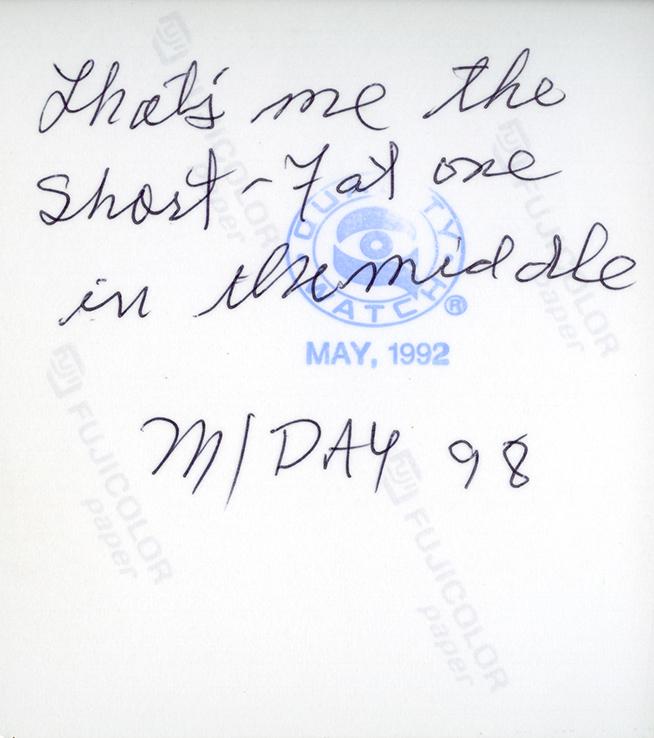 That's me the
Short-Fat one
in the middle
QUALITY
WATCH®
MAY, 1992
M/DAY 98
FUJI FUJICOLOR
paper
FUJI FUJICOLOR
paper
FUJI FUJICOLOR
paper
FUJI FUJICOLOR
paper